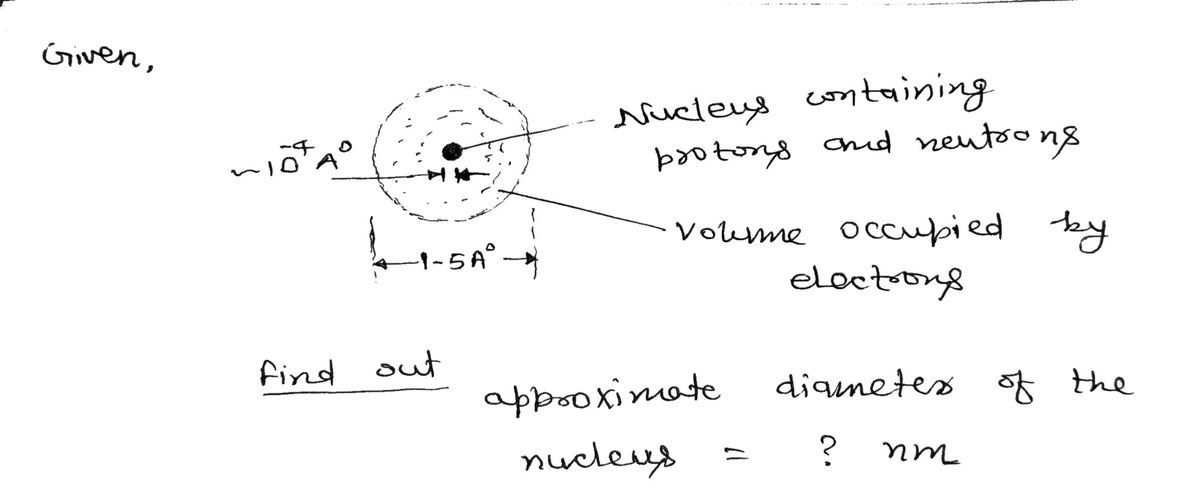 Given,
Nucleus containing
protons and neutrons
~10⁻⁴ A⁰
Volume occupied by
electrons
1-5A⁰
Find out
approximate diameter of the
nucleus = ? nm